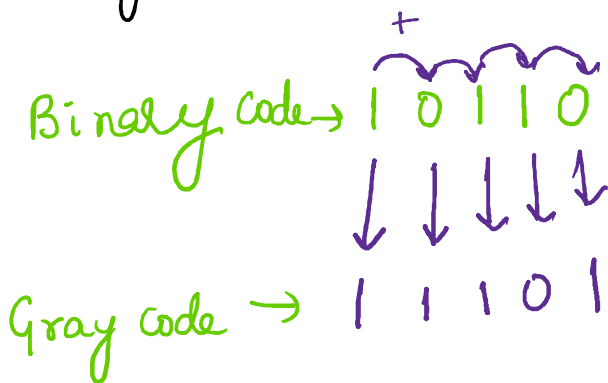 +
Binary code → 1 0 1 1 0
Gray code → 1 1 1 0 1